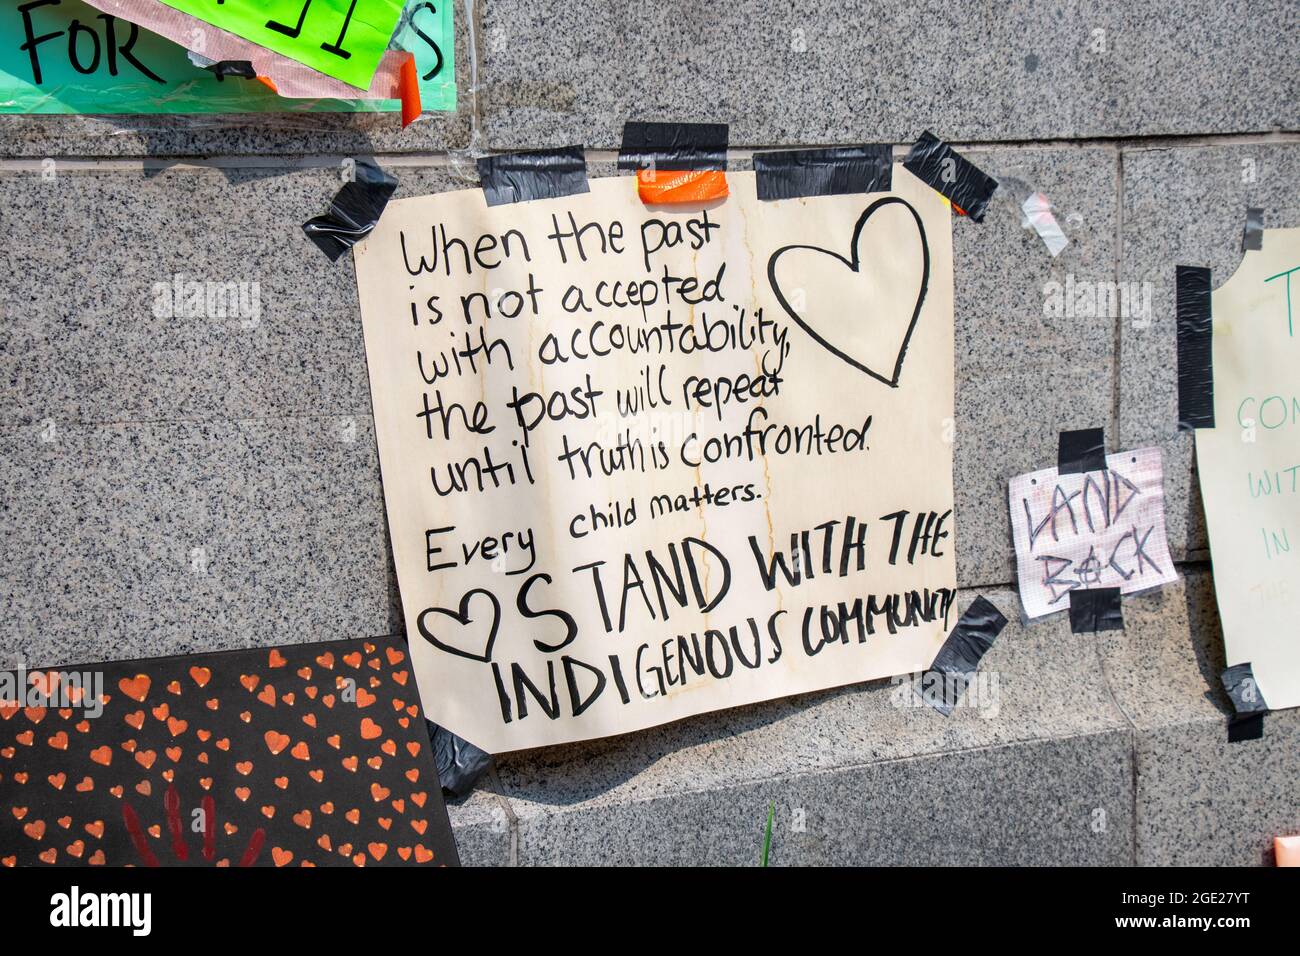 FOR
When the past
is not accepted
with accountability,
the past will repeat
until truth is confronted.
Every child matters.
STAND WITH THE
INDIGENOUS COMMUNITY
LAND
BACK
WIT
IN
alamy
Image ID: 2GE27YT
www.alamy.com